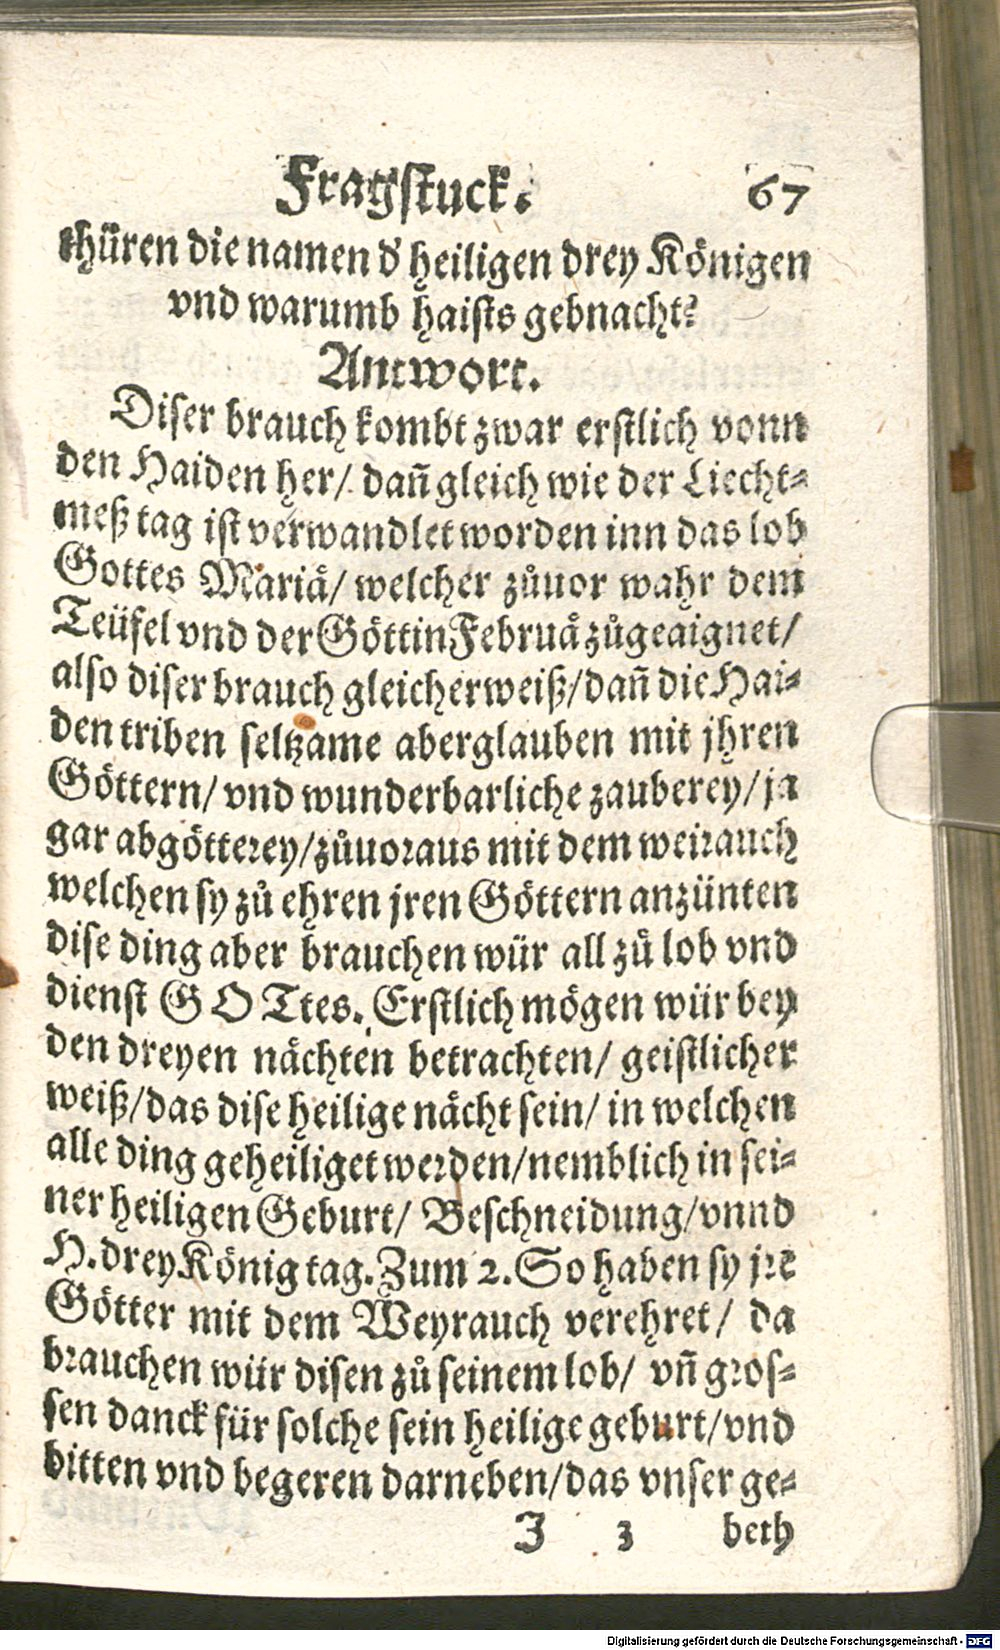 Fragstuck. 67
thüren die namen d' heiligen drey Königen
vnd warumb haists gebnacht?
Antwort.
Diser brauch kombt zwar erstlich vonn
den Haiden her/ dañ gleich wie der Liecht-
meß tag ist verwandlet worden inn das lob
Gottes Mariä/ welcher zůuor wahr dem
Teüfel vnd der Göttin Februä zůgeaignet/
also diser brauch gleicher weiß/ dañ die Hai-
den triben seltzame aberglauben mit jhren
Göttern/ vnd wunderbarliche zauberey/ ja
gar abgötterey/ zůuoraus mit dem weirauch
welchen sy zů ehren jren Göttern anzünten
dise ding aber brauchen wür all zů lob vnd
dienst GOTtes. Erstlich mögen wür bey
den dreyen nächten betrachten/ geistlicher
weiß/ das dise heilige nächt sein/ in welchen
alle ding geheiliget werden/ nemblich in sei-
ner heiligen Geburt/ Beschneidung/ vnnd
H. drey König tag. Zum 2. So haben sy jre
Götter mit dem Weyrauch verehret/ da
brauchen wür disen zů seinem lob/ vñ gros-
sen danck für solche sein heilige geburt/ vnd
bitten vnd begeren darneben/ das vnser ge-
J 3 beth
Digitalisierung gefördert durch die Deutsche Forschungsgemeinschaft - DFG